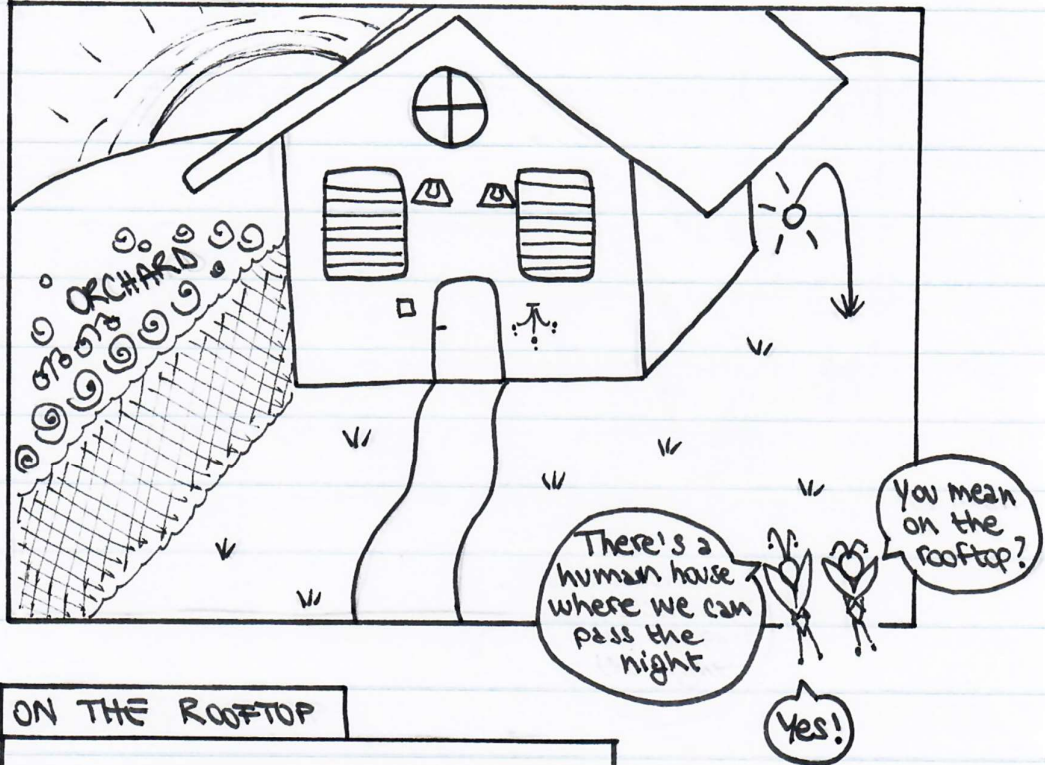 ORCHARD
There's a
human house
where we can
pass the
night
You mean
on the
rooftop?
Yes!
ON THE ROOFTOP